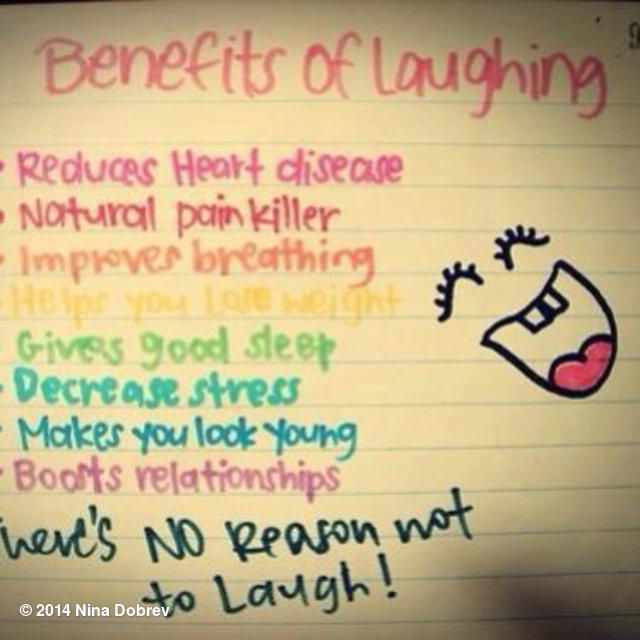 Benefits of Laughing
• Reduces Heart disease
• Natural painkiller
• Improves breathing
• Helps you Lose weight
• Gives good sleep
• Decrease stress
• Makes you look young
• Boosts relationships
There's NO Reason not
to Laugh!
© 2014 Nina Dobrev